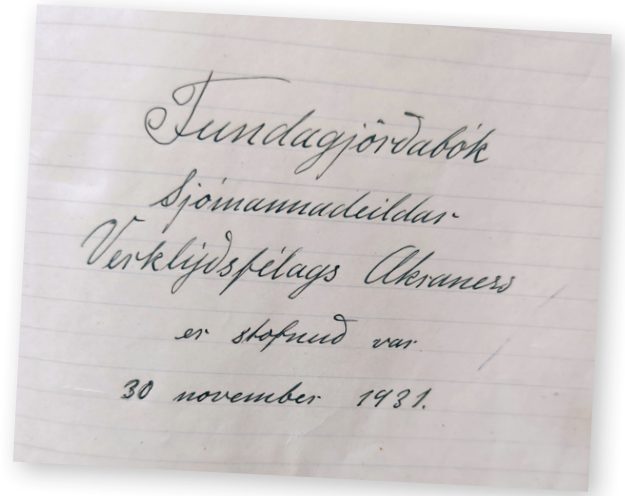 Fundagjörðabók
Sjómannadeildar
Verklýðsfélags Akraness
er stofnuð var
30 november 1931.